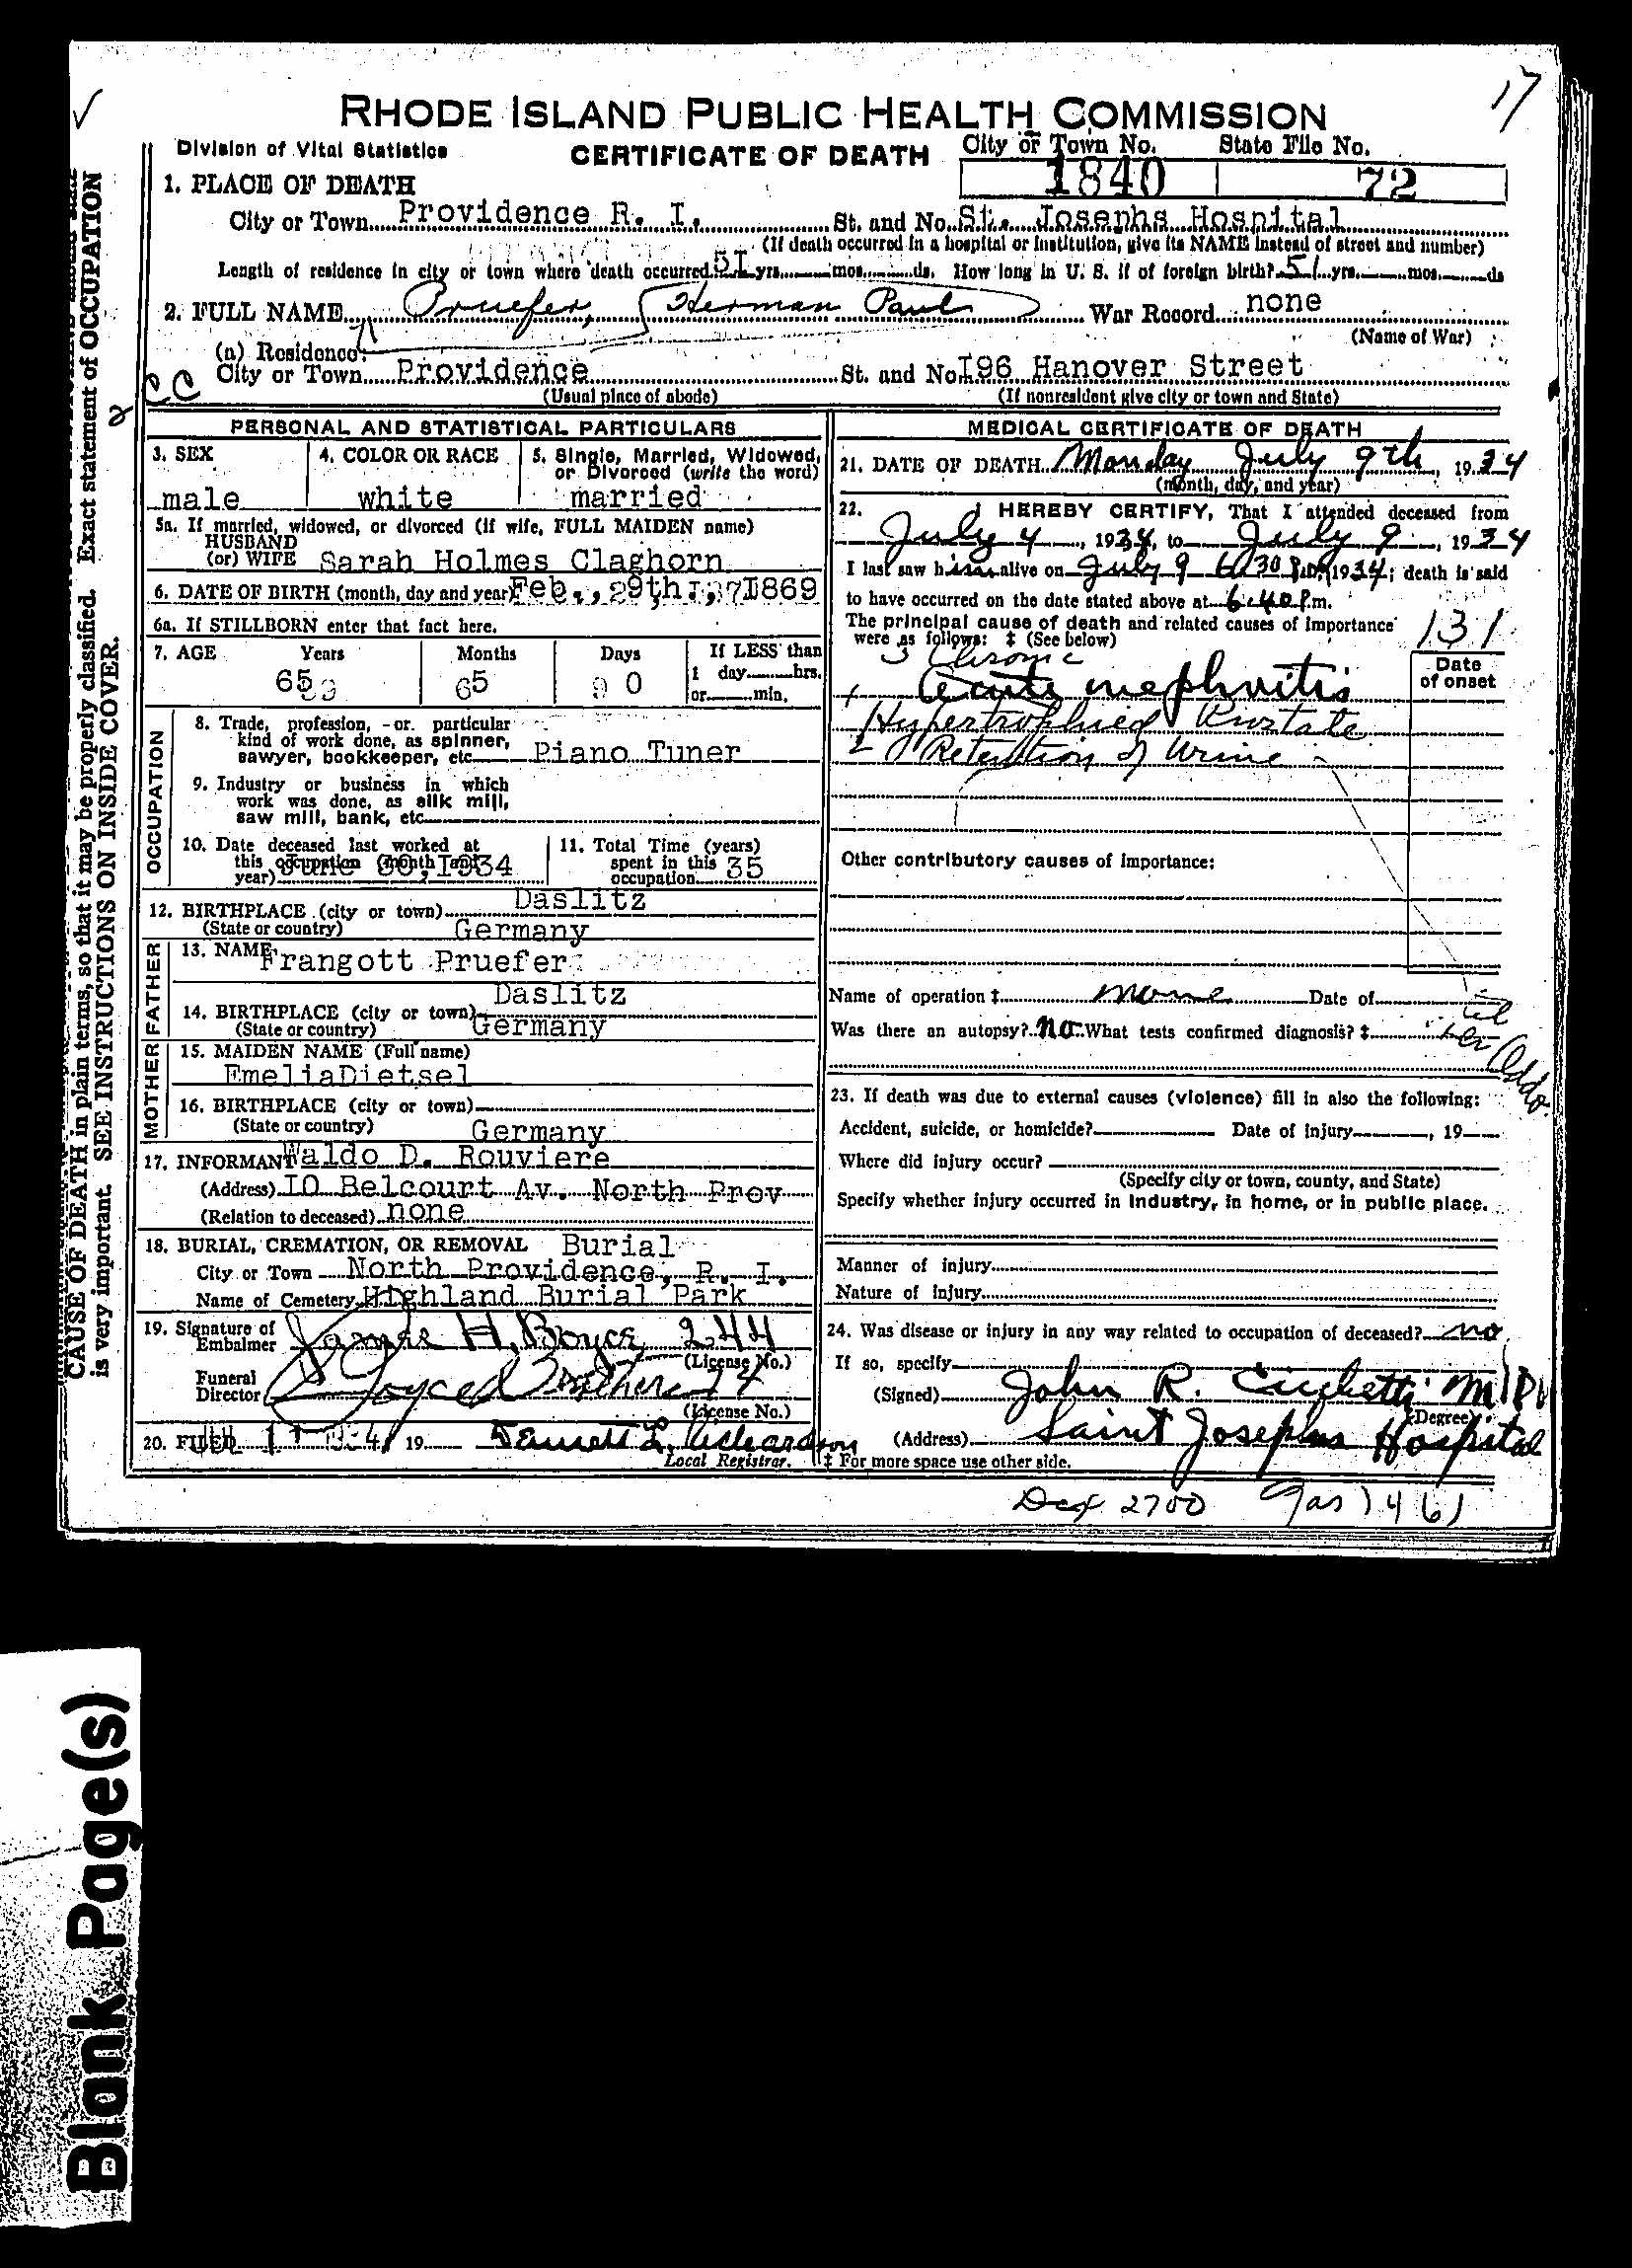 17
RHODE ISLAND PUBLIC HEALTH COMMISSION
Division of Vital Statistics
CERTIFICATE OF DEATH
City or Town No. State File No.
1840 72
1. PLACE OF DEATH
City or Town Providence R. I. St. and No. St. Josephs Hospital
(If death occurred in a hospital or institution, give its NAME instead of street and number)
Length of residence in city or town where death occurred 5I yrs. mos. ds. How long in U. S. if of foreign birth? 51 yrs. mos. ds
2. FULL NAME Pruefer, Herman Paul War Record none
(Name of War)
(a) Residence:
City or Town Providence St. and No I96 Hanover Street
(Usual place of abode) (If nonresident give city or town and State)
CC
PERSONAL AND STATISTICAL PARTICULARS
3. SEX
male
4. COLOR OR RACE
white
5. Single, Married, Widowed,
or Divorced (write the word)
married
5a. If married, widowed, or divorced (if wife, FULL MAIDEN name)
HUSBAND
(or) WIFE Sarah Holmes Claghorn
6. DATE OF BIRTH (month, day and year) Feb., 29th, 1869
6a. If STILLBORN enter that fact here.
7. AGE Years Months Days If LESS than
1 day hrs.
or min.
65
OCCUPATION
8. Trade, profession, or particular
kind of work done, as spinner,
sawyer, bookkeeper, etc. Piano Tuner
9. Industry or business in which
work was done, as silk mill,
saw mill, bank, etc.
10. Date deceased last worked at
this occupation (month and
year) June 30, I934
11. Total Time (years)
spent in this
occupation 35
12. BIRTHPLACE (city or town) Daslitz
(State or country) Germany
FATHER
13. NAME Frangott Pruefer
14. BIRTHPLACE (city or town) Daslitz
(State or country) Germany
MOTHER
15. MAIDEN NAME (Full name)
EmeliaDietsel
16. BIRTHPLACE (city or town)
(State or country) Germany
17. INFORMANT Waldo D. Rouviere
(Address) IO Belcourt Av. North Prov
(Relation to deceased) none
18. BURIAL, CREMATION, OR REMOVAL Burial
City or Town North Providence, R. I.
Name of Cemetery Highland Burial Park
19. Signature of
Embalmer James H. Boyce 244
(License No.)
Funeral
Director Boyce Brothers 74
(License No.)
20. FILED 19
Local Registrar.
MEDICAL CERTIFICATE OF DEATH
21. DATE OF DEATH Monday July 9th, 1934
(month, day, and year)
22. I HEREBY CERTIFY, That I attended deceased from
July 4, 1934, to July 9, 1934
I last saw him alive on July 9 6:30 P.M. 1934; death is said
to have occurred on the date stated above at 6:40 P.m.
The principal cause of death and related causes of importance
were as follows: ‡ (See below)
131
Date
of onset
Chronic
Acute nephritis
Hypertrophied Prostate
Retention of Urine
Other contributory causes of importance:
Name of operation ‡ none Date of
Was there an autopsy? no What tests confirmed diagnosis? ‡
23. If death was due to external causes (violence) fill in also the following:
Accident, suicide, or homicide? Date of injury , 19
Where did injury occur?
(Specify city or town, county, and State)
Specify whether injury occurred in industry, in home, or in public place.
Manner of injury
Nature of injury
24. Was disease or injury in any way related to occupation of deceased? no
If so, specify
(Signed) John R. Cicchetti M.D.
(Degree)
(Address) Saint Josephs Hospital
‡ For more space use other side.
2700
CAUSE OF DEATH in plain terms, so that it may be properly classified. Exact statement of OCCUPATION
is very important. SEE INSTRUCTIONS ON INSIDE COVER.
Blank Page(s)